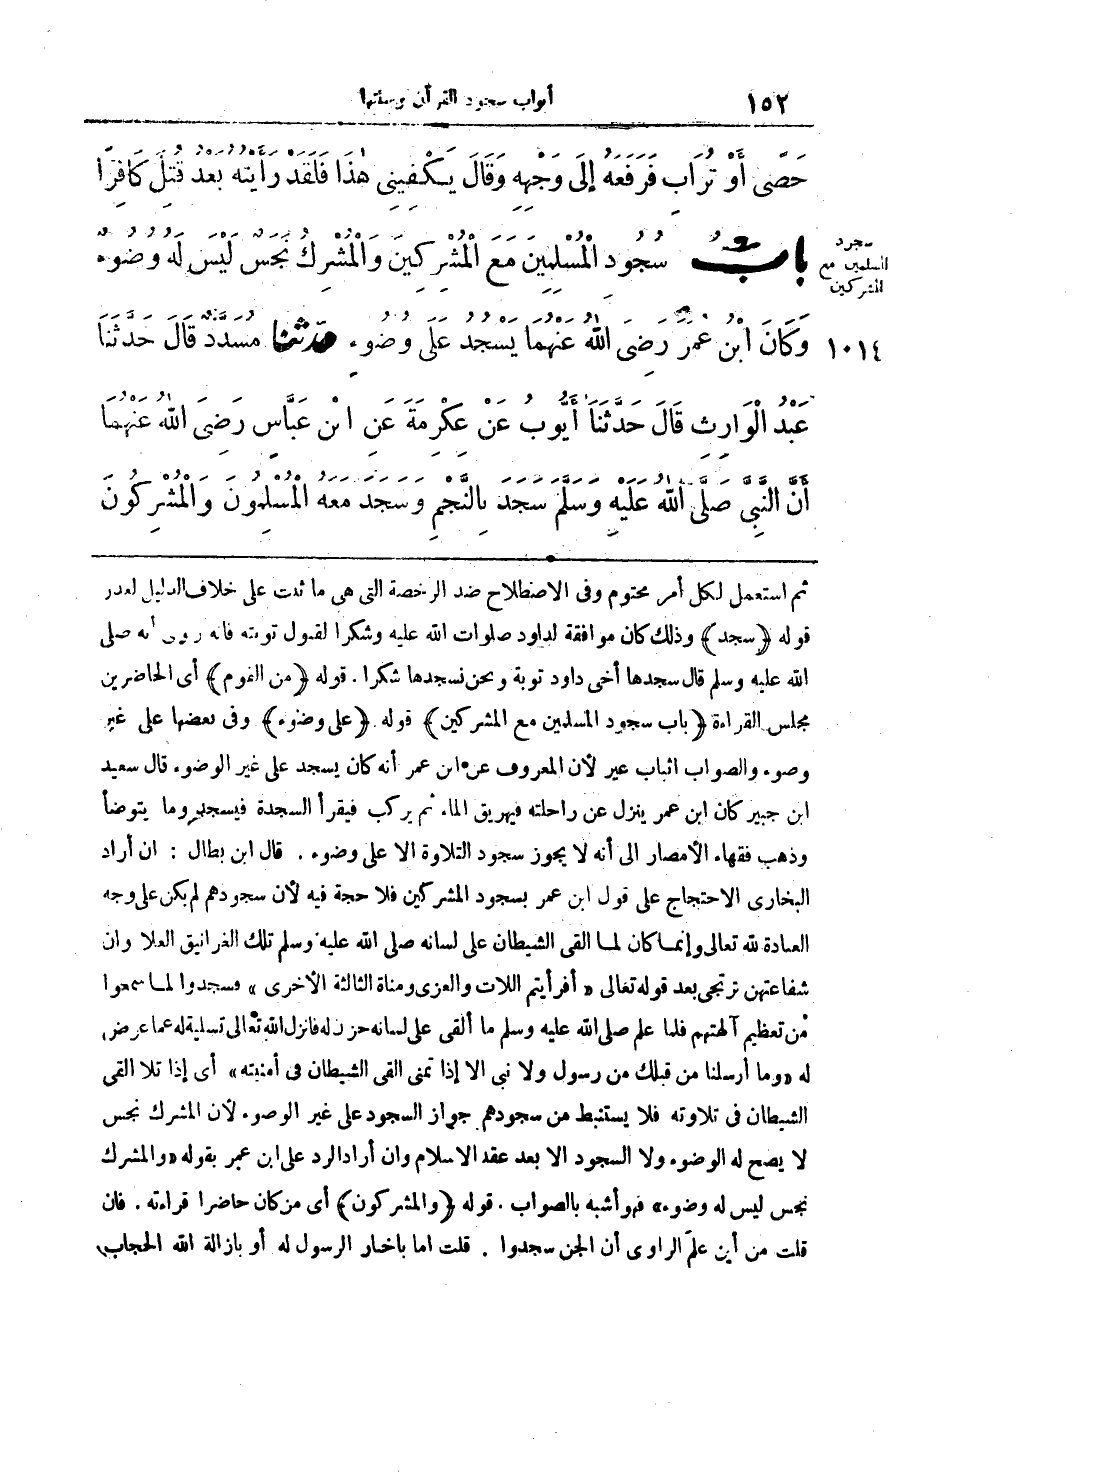 ١٥٢ أبواب سجود القرآن وسنتها
حَصًى أَوْ تُرَابٍ فَرَفَعَهُ إِلَى وَجْهِهِ وَقَالَ يَكْفِينِى هٰذَا فَلَقَدْ رَأَيْتُهُ بَعْدُ قُتِلَ كَافِرًا
بَابُ سُجُودِ الْمُسْلِمِينَ مَعَ الْمُشْرِكِينَ وَالْمُشْرِكُ نَجَسٌ لَيْسَ لَهُ وُضُوءٌ
سجود
المسلمين مع
المشركين
وَكَانَ ابْنُ عُمَرَ رَضِىَ اللهُ عَنْهُمَا يَسْجُدُ عَلَى وُضُوءٍ حدّثنا مُسَدَّدٌ قَالَ حَدَّثَنَا
١٠١٤
عَبْدُ الْوَارِثِ قَالَ حَدَّثَنَا أَيُّوبُ عَنْ عِكْرِمَةَ عَنِ ابْنِ عَبَّاسٍ رَضِىَ اللهُ عَنْهُمَا
أَنَّ النَّبِىَّ صَلَّى اللهُ عَلَيْهِ وَسَلَّمَ سَجَدَ بِالنَّجْمِ وَسَجَدَ مَعَهُ الْمُسْلِمُونَ وَالْمُشْرِكُونَ
ثم استعمل لكل أمر محتوم وفى الاصطلاح ضد الرخصة التى هى ما ثبت على خلاف الدليل لعذر
قوله (سجد) وذلك كان موافقة لداود صلوات الله عليه وشكرا لقبول توبته فانه روى أنه صلى
الله عليه وسلم قال سجدها أخى داود توبة ونحن نسجدها شكرا. قوله (من القوم) أى الحاضرين
مجلس القراءة (باب سجود المسلمين مع المشركين) قوله (على وضوء) وفى بعضها على غير
وضوء والصواب اثبات غير لأن المعروف عن ابن عمر أنه كان يسجد على غير الوضوء قال سعيد
ابن جبير كان ابن عمر ينزل عن راحلته فيهريق الماء ثم يركب فيقرأ السجدة فيسجد وما يتوضأ
وذهب فقهاء الأمصار الى أنه لا يجوز سجود التلاوة الا على وضوء. قال ابن بطال : ان أراد
البخارى الاحتجاج على قول ابن عمر بسجود المشركين فلا حجة فيه لأن سجودهم لم يكن على وجه
العبادة لله تعالى وإنما كان لما القى الشيطان على لسانه صلى الله عليه وسلم تلك الغرانيق العلا وان
شفاعتهن ترتجى بعد قوله تعالى «أفرأيتم اللات والعزى ومناة الثالثة الأخرى» وسجدوا لما سمعوا
من تعظيم آلهتهم فلما علم صلى الله عليه وسلم ما ألقى على لسانه حزن له فانزل الله تعالى تسلية له عما عرض
له «وما أرسلنا من قبلك من رسول ولا نبى الا إذا تمنى القى الشيطان فى أمنيته» أى إذا تلا القى
الشيطان فى تلاوته فلا يستنبط من سجودهم جواز السجود على غير الوضوء لأن المشرك نجس
لا يصح له الوضوء ولا السجود الا بعد عقد الاسلام وان أراد الرد على ابن عمر بقوله «والمشرك
نجس ليس له وضوء» فهو أشبه بالصواب. قوله (والمشركون) أى من كان حاضرا قراءته. فان
قلت من أين علم الراوى أن الجن سجدوا. قلت اما باخبار الرسول له أو بازالة الله الحجاب